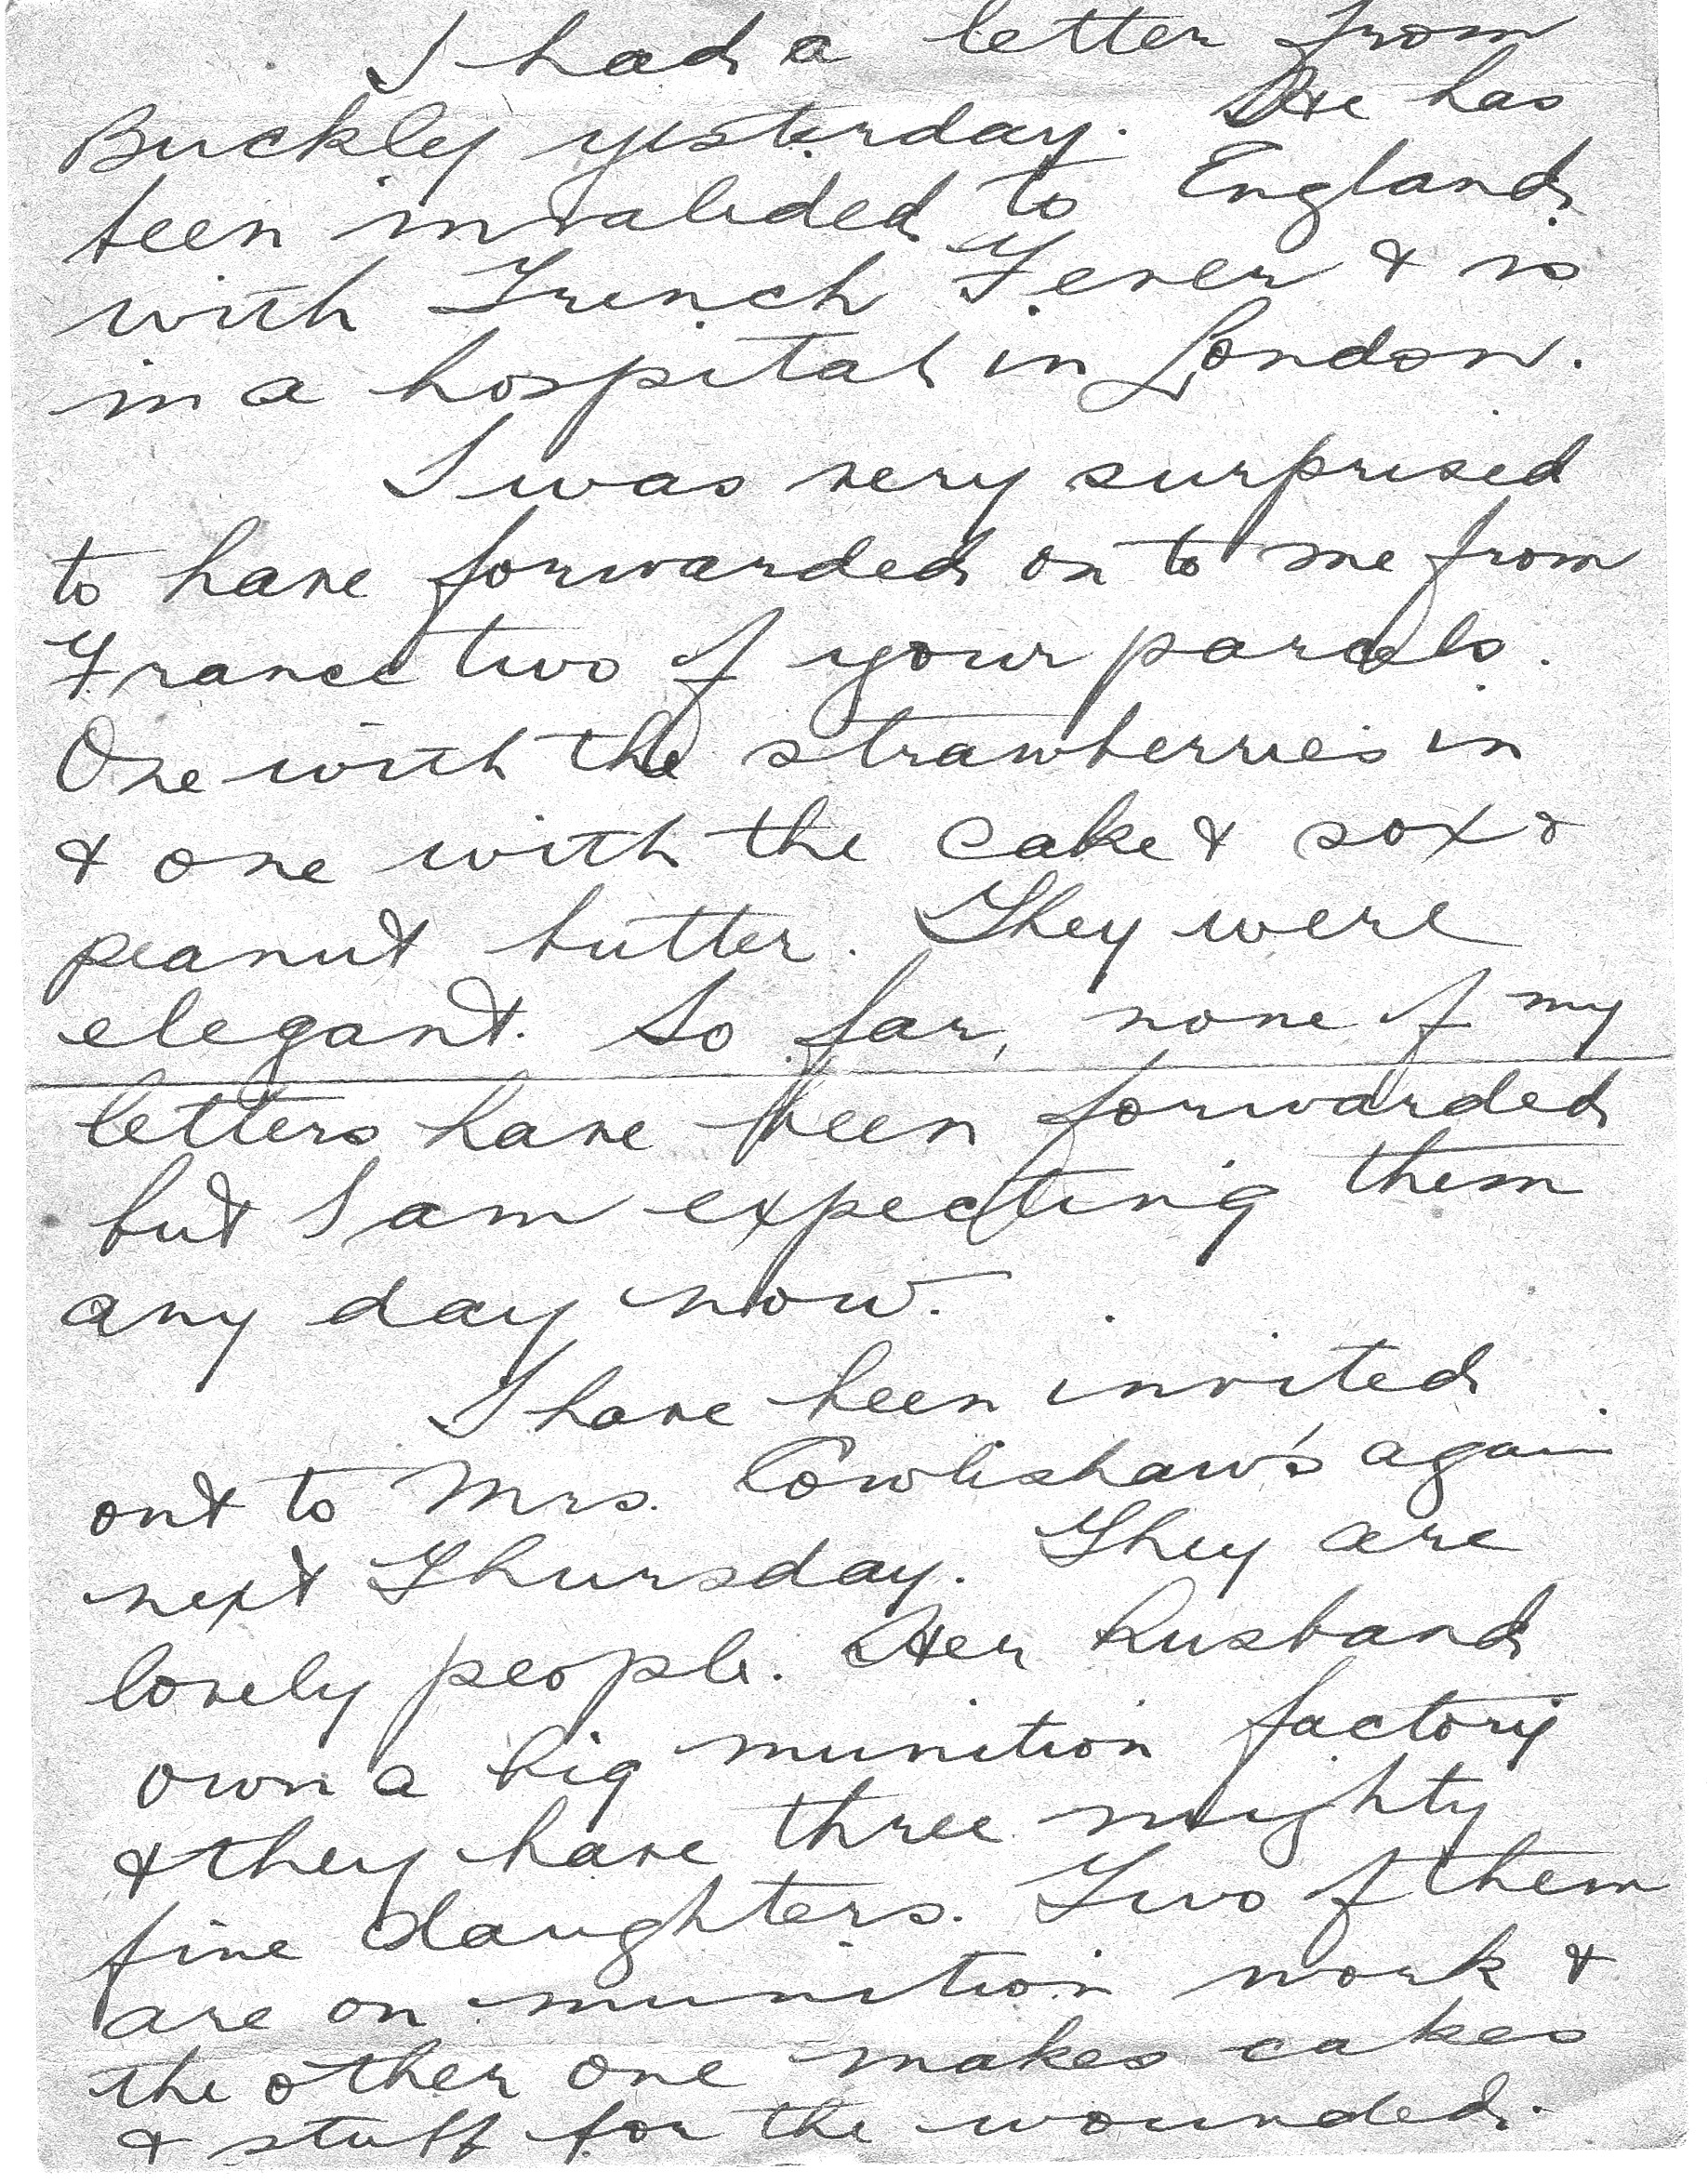 I had a letter from
Buckly yesterday. He has
been invalided to England
with Trench Fever & is
in a hospital in London.
I was very surprised
to have forwarded on to me from
France two of your parcels.
One with the strawberries in
& one with the cake & sox &
peanut butter. They were
elegant. So far, none of my
letters have been forwarded
but I am expecting them
any day now.
I have been invited
out to Mrs. Cowlishaw's again
next Thursday. They are
lovely people. Her husband
own a big munition factory
& they have three mighty
fine daughters. Two of them
are on munition work &
the other one makes cakes
& stuff for the wounded.